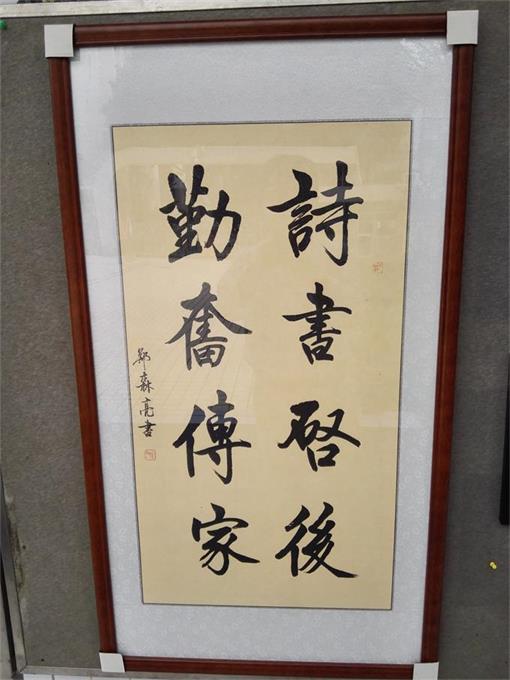 詩書啓後
勤奮傳家
鄭森亮書